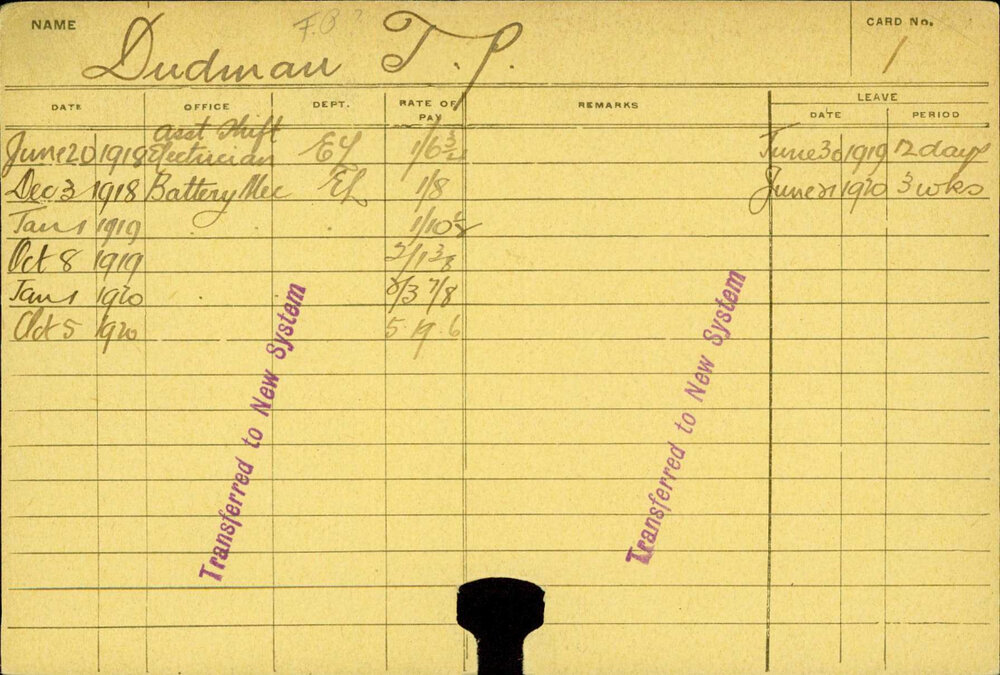 NAME
CARD No.
Dudman T. P.
1
DATE OFFICE DEPT. RATE OF PAY REMARKS LEAVE
DATE PERIOD
Asst Shift
June 20 1918 Electrician EL 1/6 3/4 June 30 1919 12 days
Dec 3 1918 Battery Mec EL 1/8 June 21 1920 3 wks
Jan 1 1919 1/10
Oct 8 1919 2/1 3/8
Jan 1 1920 2/3 7/8
Oct 5 1920 5 19 6
Transferred to New System
Transferred to New System